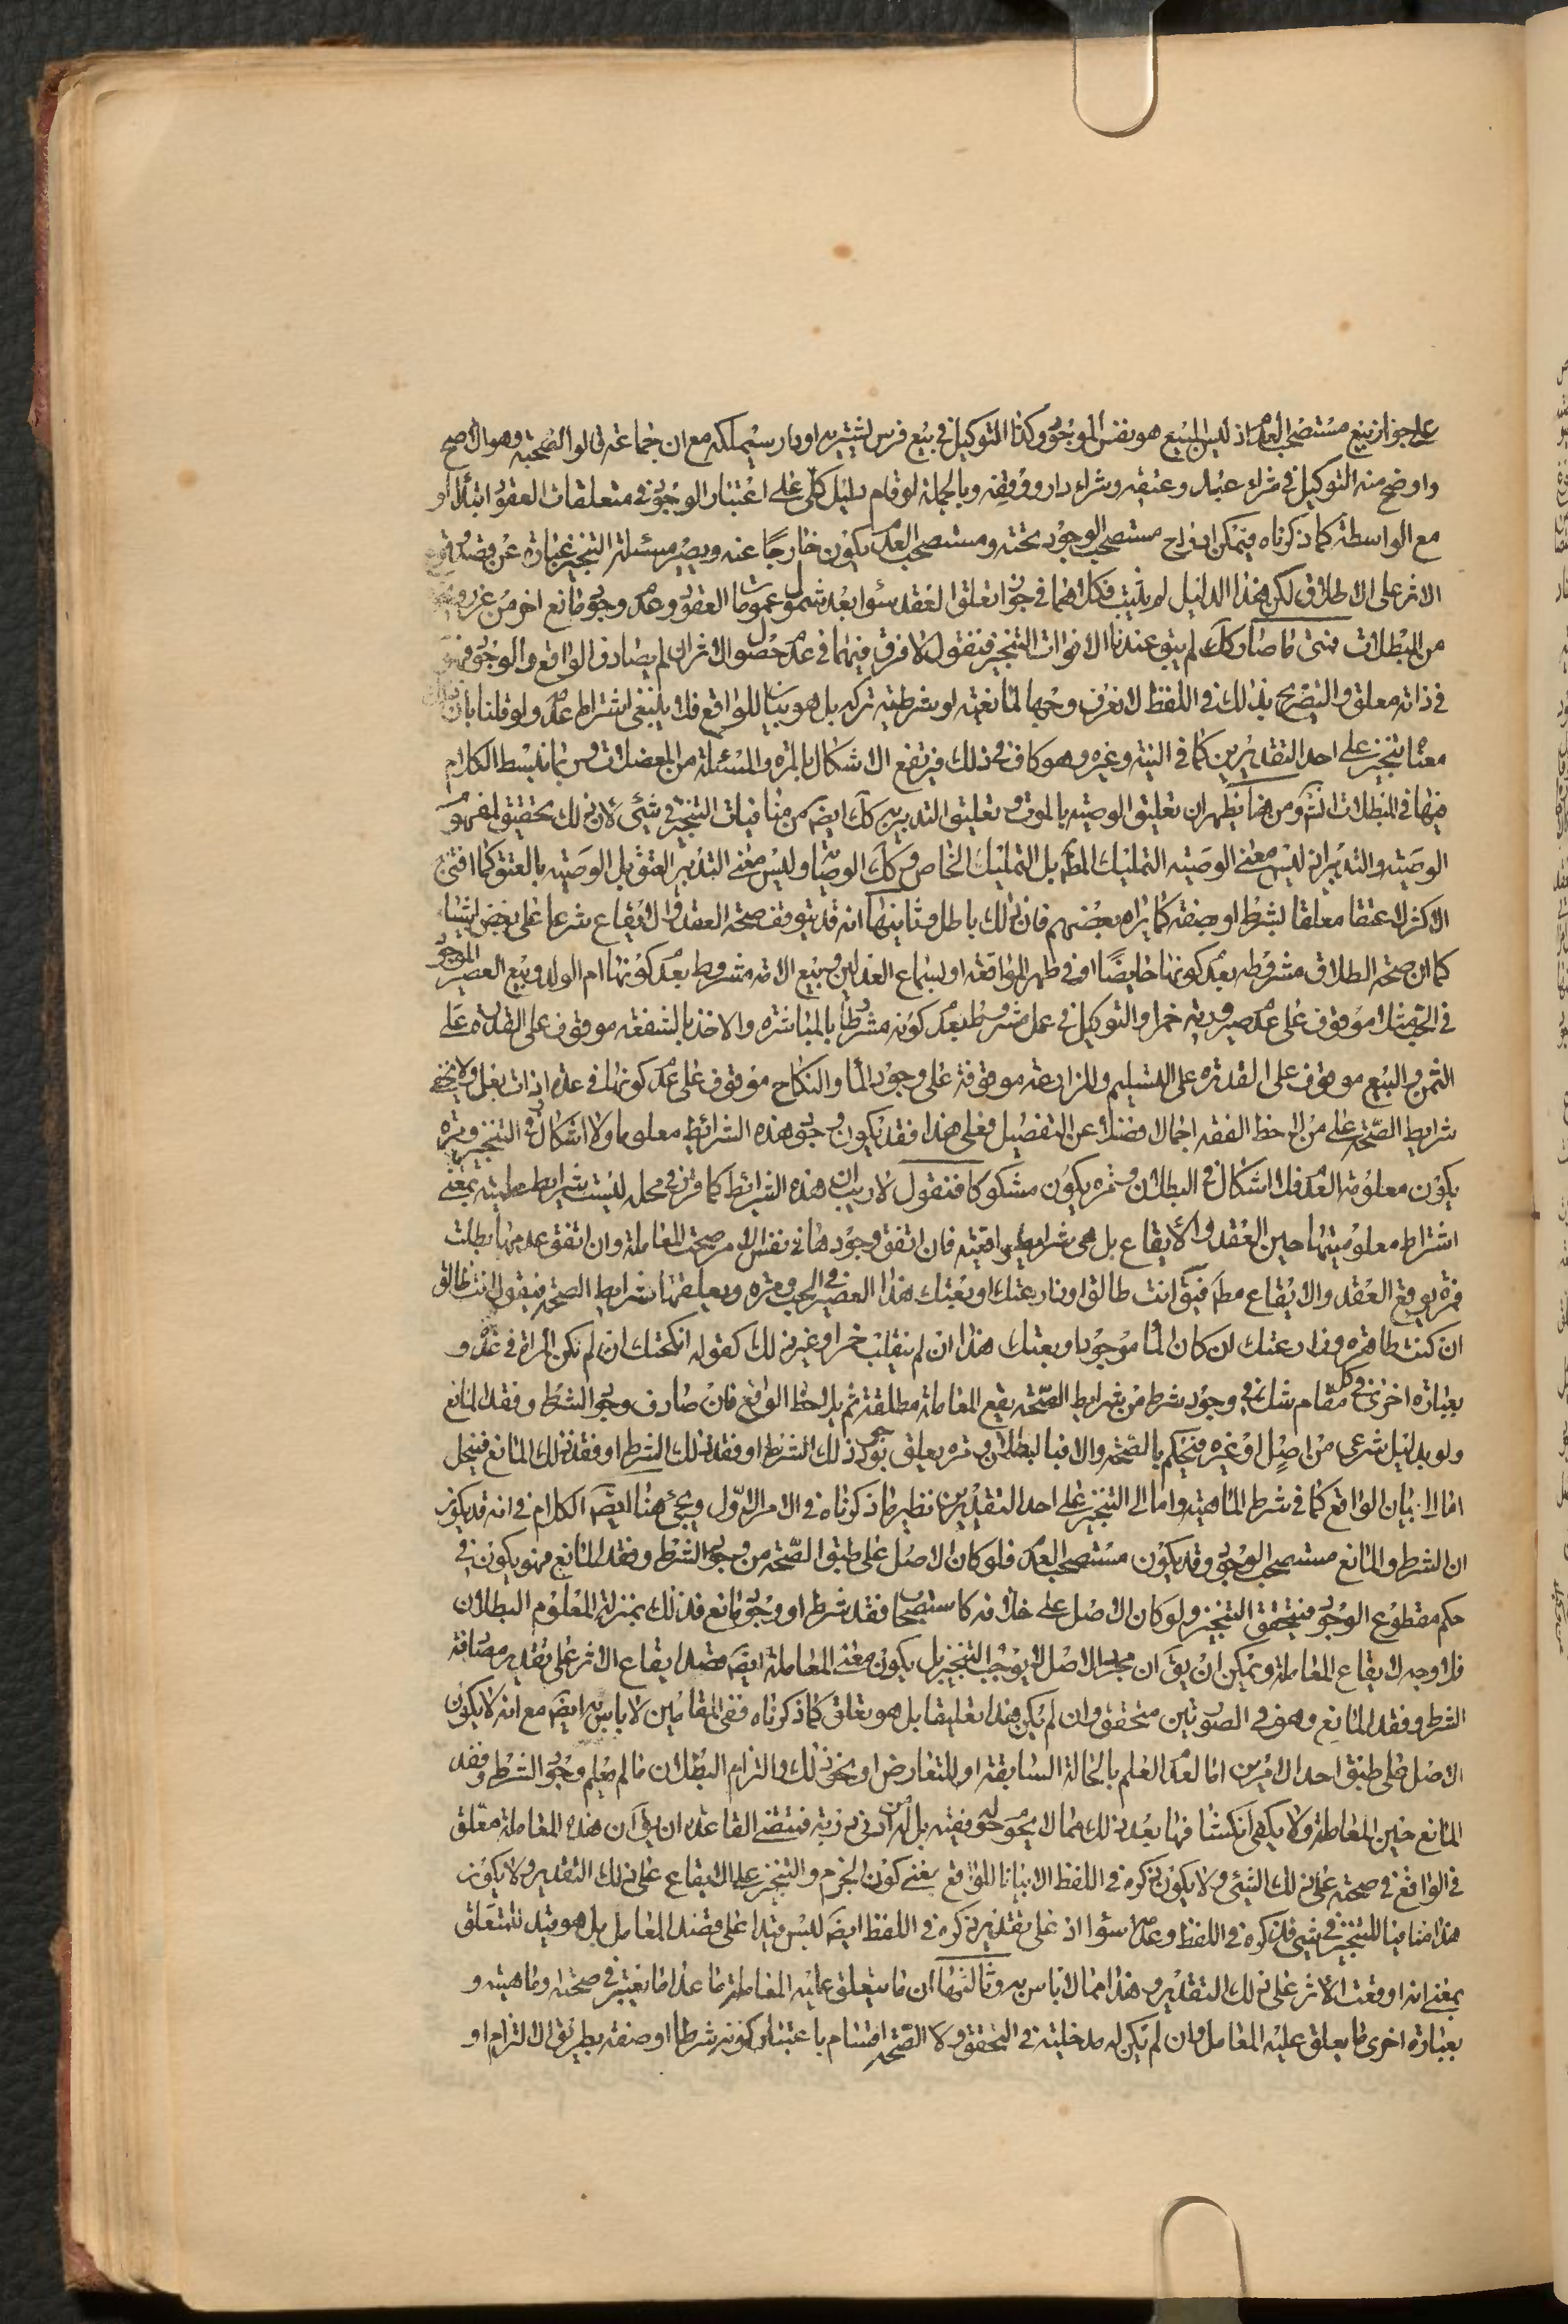 على جواز بيع مستصحب العدم اذ ليس المبيع هو نفس الموجود وكذا التوكيل في بيع فرس ليشتريه او دار سيملكه مع ان جماعة قالوا بالصحة وهو الاصح
واوضح منه التوكيل في شراء عبد وعتقه وشراء دار ووقفه وبالجملة لو قام دليل كلى على اعتبار الوجود في متعلقات العقود ابتداء او
مع الواسطة كما ذكرناه فيمكن اندراج مستصحب الوجود تحته ومستصحب العدم يكون خارجا عنه ويصير مسئلة التنجيز عبارة عن قصد
الاثر على الاطلاق لكن هذا الدليل لم يثبت فكلاهما في جواز تعلق العقد سواء بعد شمول عمومات العقود وعدم وجود مانع اخر من غرر
من المبطلات فمتى ما صار كك لم يبق عندنا الا فوات التنجيز فنقول لا فرق فيهما في عدم حصول الاثر ان لم يصادف الواقع والوجود فهو
في ذاته معلق والتصريح بذلك في اللفظ لا نعرف وجها لمانعيته او شرطية تركه بل هو بيان للواقع فلا ينبغي اشتراط عدمه ولو قلنا بان
معناه تنجيز على احد التقديرين كما في النية وغيره وهو كاف في ذلك فيرتفع الاشكال بالمرة والمسئلة من المعضلات وربما نبسط الكلام
فيها في المبطلات انش ومن هنا يظهر ان تعليق الوصية بالموت وتعليق التدبير به كك ايضا ليس من منافيات التنجيز في شئ لان ذلك تحقيق لمفهوم
الوصية والتدبير اذ ليس معنى الوصية التمليك المطلق بل التمليك الخاص وكك الوصاية وليس معنى التدبير العتق بل الوصية بالعتق كما افتى به
الاكثر لا عتقا معلقا بشرط او صفة كما يراه بعضهم فان ذلك باطل وثانيها انه قد يتوقف صحة العقد والايقاع شرعا على بعض اشياء
كما ان صحة الطلاق مشروطه بعدم كونها حايضا او في طهر المواقعة او بسماع العدلين وبيع الامة مشروط بعدم كونها ام الولد وبيع العصير الموجود
في الحب مثلا موقوف على عدم صيرورته خمرا والتوكيل في عمل مشروط بعدم كونه مشروطا بالمباشرة والاخذ بالشفعة موقوف على القدرة على
الثمن والبيع موقوف على القدرة على التسليم والمزارعة موقوفة على وجود الماء والنكاح موقوف على عدم كونها في عدة او ذات بعل ولا يخفى
شرايط الصحة على من لاحظ الفقه اجمالا فضلا عن التفصيل فعلى هذا فقد يكون وجود هذه الشرائط معلوما ولا اشكال في التنجيز ومرة
يكون معلومة العدم فلا اشكال في البطلان ومرة يكون مشكوكا فنقول لا ريب ان هذه الشرائط كما قرر في محله ليست شرايط علمية بمعنى
اشتراط معلوميتها حين العقد والايقاع بل هى شرايط واقعية فان اتفق وجودها في نفس الامر صحت المعاملة وان اتفق عدمها بطلت
فمرة يوقع العقد والايقاع مطلقا فيق انت طالق او زارعتك او بعتك هذا العصير في الحب ومرة ويعلقها بشرايط الصحة فيقول انت طالق
ان كنت طاهرة وزارعتك ان كان الماء موجودا وبعتك هذا ان لم ينقلب خمرا وغير ذلك كقوله انكحتك ان لم تكن المراة في عدة و
بعبارة اخرى في كل مقام شك في وجود شرط من شرايط الصحة يقع المعاملة مطلقة ثم يلاحظ الواقع فان صادف وجود الشرط وفقد المانع
ولو بدليل شرعى من اصل او غيره فيحكم بالصحة والا فبالبطلان ومرة يعلق بوجود ذلك الشرط او فقد ذلك الشرط او فقد ذلك المانع فينحل
اما الى بيان الواقع كما في شرط الماهية واما الى التنجيز على احد التقديرين نظير ما ذكرناه في الامر الاول ويجئ هنا ايضا الكلام في انه قد يكون
ان الشرط والمانع مستصحب الوجود وقد يكون مستصحب العدم فلو كان الاصل على طبق الصحة من وجود الشرط وفقد المانع فهو يكون في
حكم مقطوع الوجود فيتحقق التنجيز ولو كان الاصل على خلافه كاستصحاب فقد شرط او وجود مانع فذلك بمنزلة المعلوم البطلان
فلا وجه لايقاع المعاملة ويمكن ان يق ان مجرد الاصل لا يوجب التنجيز بل يكون معنى المعاملة ايضا قصد ايقاع الاثر على تقدير مصادفة
الشرط وفقد المانع وهو في الصورتين متحقق وان لم يكن هذا تعليقا بل هو تعلق كما ذكرناه ففى المقامين لا باس به ايضا مع انه لا يكون
الاصل على طبق احد الامرين اما لعدم العلم بالحالة السابقة او للتعارض او نحو ذلك والتزام البطلان ما لم يعلم وجود الشرط وفقد
المانع حين المعاملة ولا يكفى انكشافها بعد ذلك مما لا يحوم حوله فقيه بل له ادنى دربة فمقتضى القاعدة ان يق ان هذه المعاملة معلق
في الواقع في صحته على ذلك الشئ ولا يكون ذكره في اللفظ الا بيانا للواقع يعنى كون الجزم والتنجيز على الايقاع على ذلك التقدير ولا يكون
هذا منافيا للتنجيز في شئ فذكره في اللفظ وعدمه سواء اذ على تقدير ذكره في اللفظ ايضا ليس قيدا على قصد المعامل بل هو قيد للمتعلق
بمعنى انه اوقعت الاثر على ذلك التقدير وهذا مما لا باس به وثالثها ان ما يتعلق عليه المعاملة ما عدا ما يعتبر في صحته وماهيته و
بعبارة اخرى ما يعلق عليه المعامل وان لم يكن له مدخلية في التحقق ولا الصحة اقسام باعتبار كونه شرطا او صفة بطريق الالتزام او